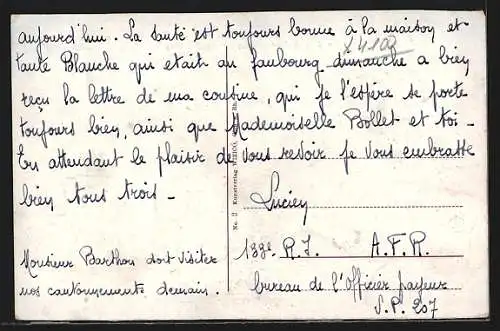 aujourd'hui. La santé est toujours bonne à la maison et
24108
tante Blanche qui etait au faubourg dimanche a bien
reçu la lettre de ma cousine, qui je l'espère se porte
toujours bien, ainsi que Mademoiselle Bollet et toi.
En attendant le plaisir de vous revoir je vous embrasse
bien tous trois.
Lucien
Monsieur Barthou doit visiter
nos cantonnements demain.
133e R.I. A.F.R.
bureau de l'Officier payeur
S.P. 207
No. 2 Kunstverlag